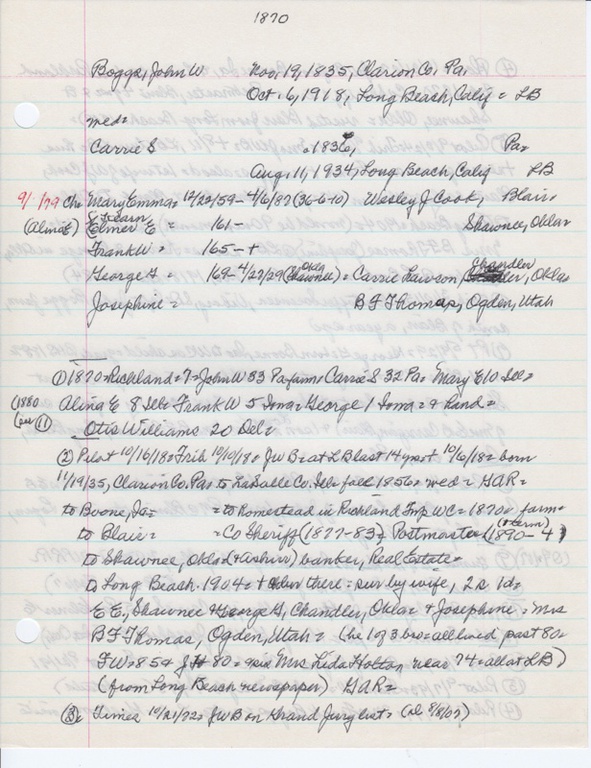 1870
Boggs, John W Nov, 19, 1835, Clarion Co, Pa,
Oct. 6, 1918, Long Beach, Calif = LB
med=
Carrie S .1836, Pa=
Aug, 11, 1934, Long Beach, Calif LB
9/1/79 Ch= Mary Emma= 12/22/59- 4/6/87 (36-6-10) Wesley J Cook, Blair,
(Alma E) Elmer E = 161- Shawnee, Okla=
Frank W = 165-+
George H = 169- 4/27/29 (Shawnee Okla) = Carrie Lawson, Chandler, Okla=
Josephine = B F Thomas, Ogden, Utah
(1) 1870=Richland=7=John W 33 Pa=farm= Carrie S 32 Pa= Mary E 10 Ill=
(1880 Alma E 8 Ill= Frank W 5 Iowa= George 1 Iowa= + hand=
(see (1)) Otis Williams 20 Del=
(2) Pilot 10/16/18= Trib 10/10/18= JWB at LB last 14 yrs+ 10/6/18= born
11/19/35, Clarion Co, Pa= to LaSalle Co, Ill= fall 1856= med= GAR=
to Boone, Ia= =to homestead in Richland Twp WC= 1870= farm=
to Blair= =Co Sheriff (1877-83), Postmaster (1890-4)
to Shawnee, Okla= banker, Real Estate=
to Long Beach. 1904=+ there= sur by wife, 2s 1d=
E E., Shawnee + George H, Chandler, Okla= + Josephine = Mrs
B F Thomas, Ogden, Utah= (he 1 of 3 bro= all lived past 80=
F W= 85+ J H 80= sis Mrs Lida Holton near 74= all at LB)
(from Long Beach newspaper) GAR=
(3) Times 10/21/22= JWB on Grand Jury list=